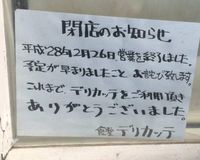 閉店のお知らせ
平成28年2月26日営業を終了しました。
予定が早まりましたこと お詫び致します。
これまで デリカッテをご利用頂き
ありがとうございました。
デリカッテ